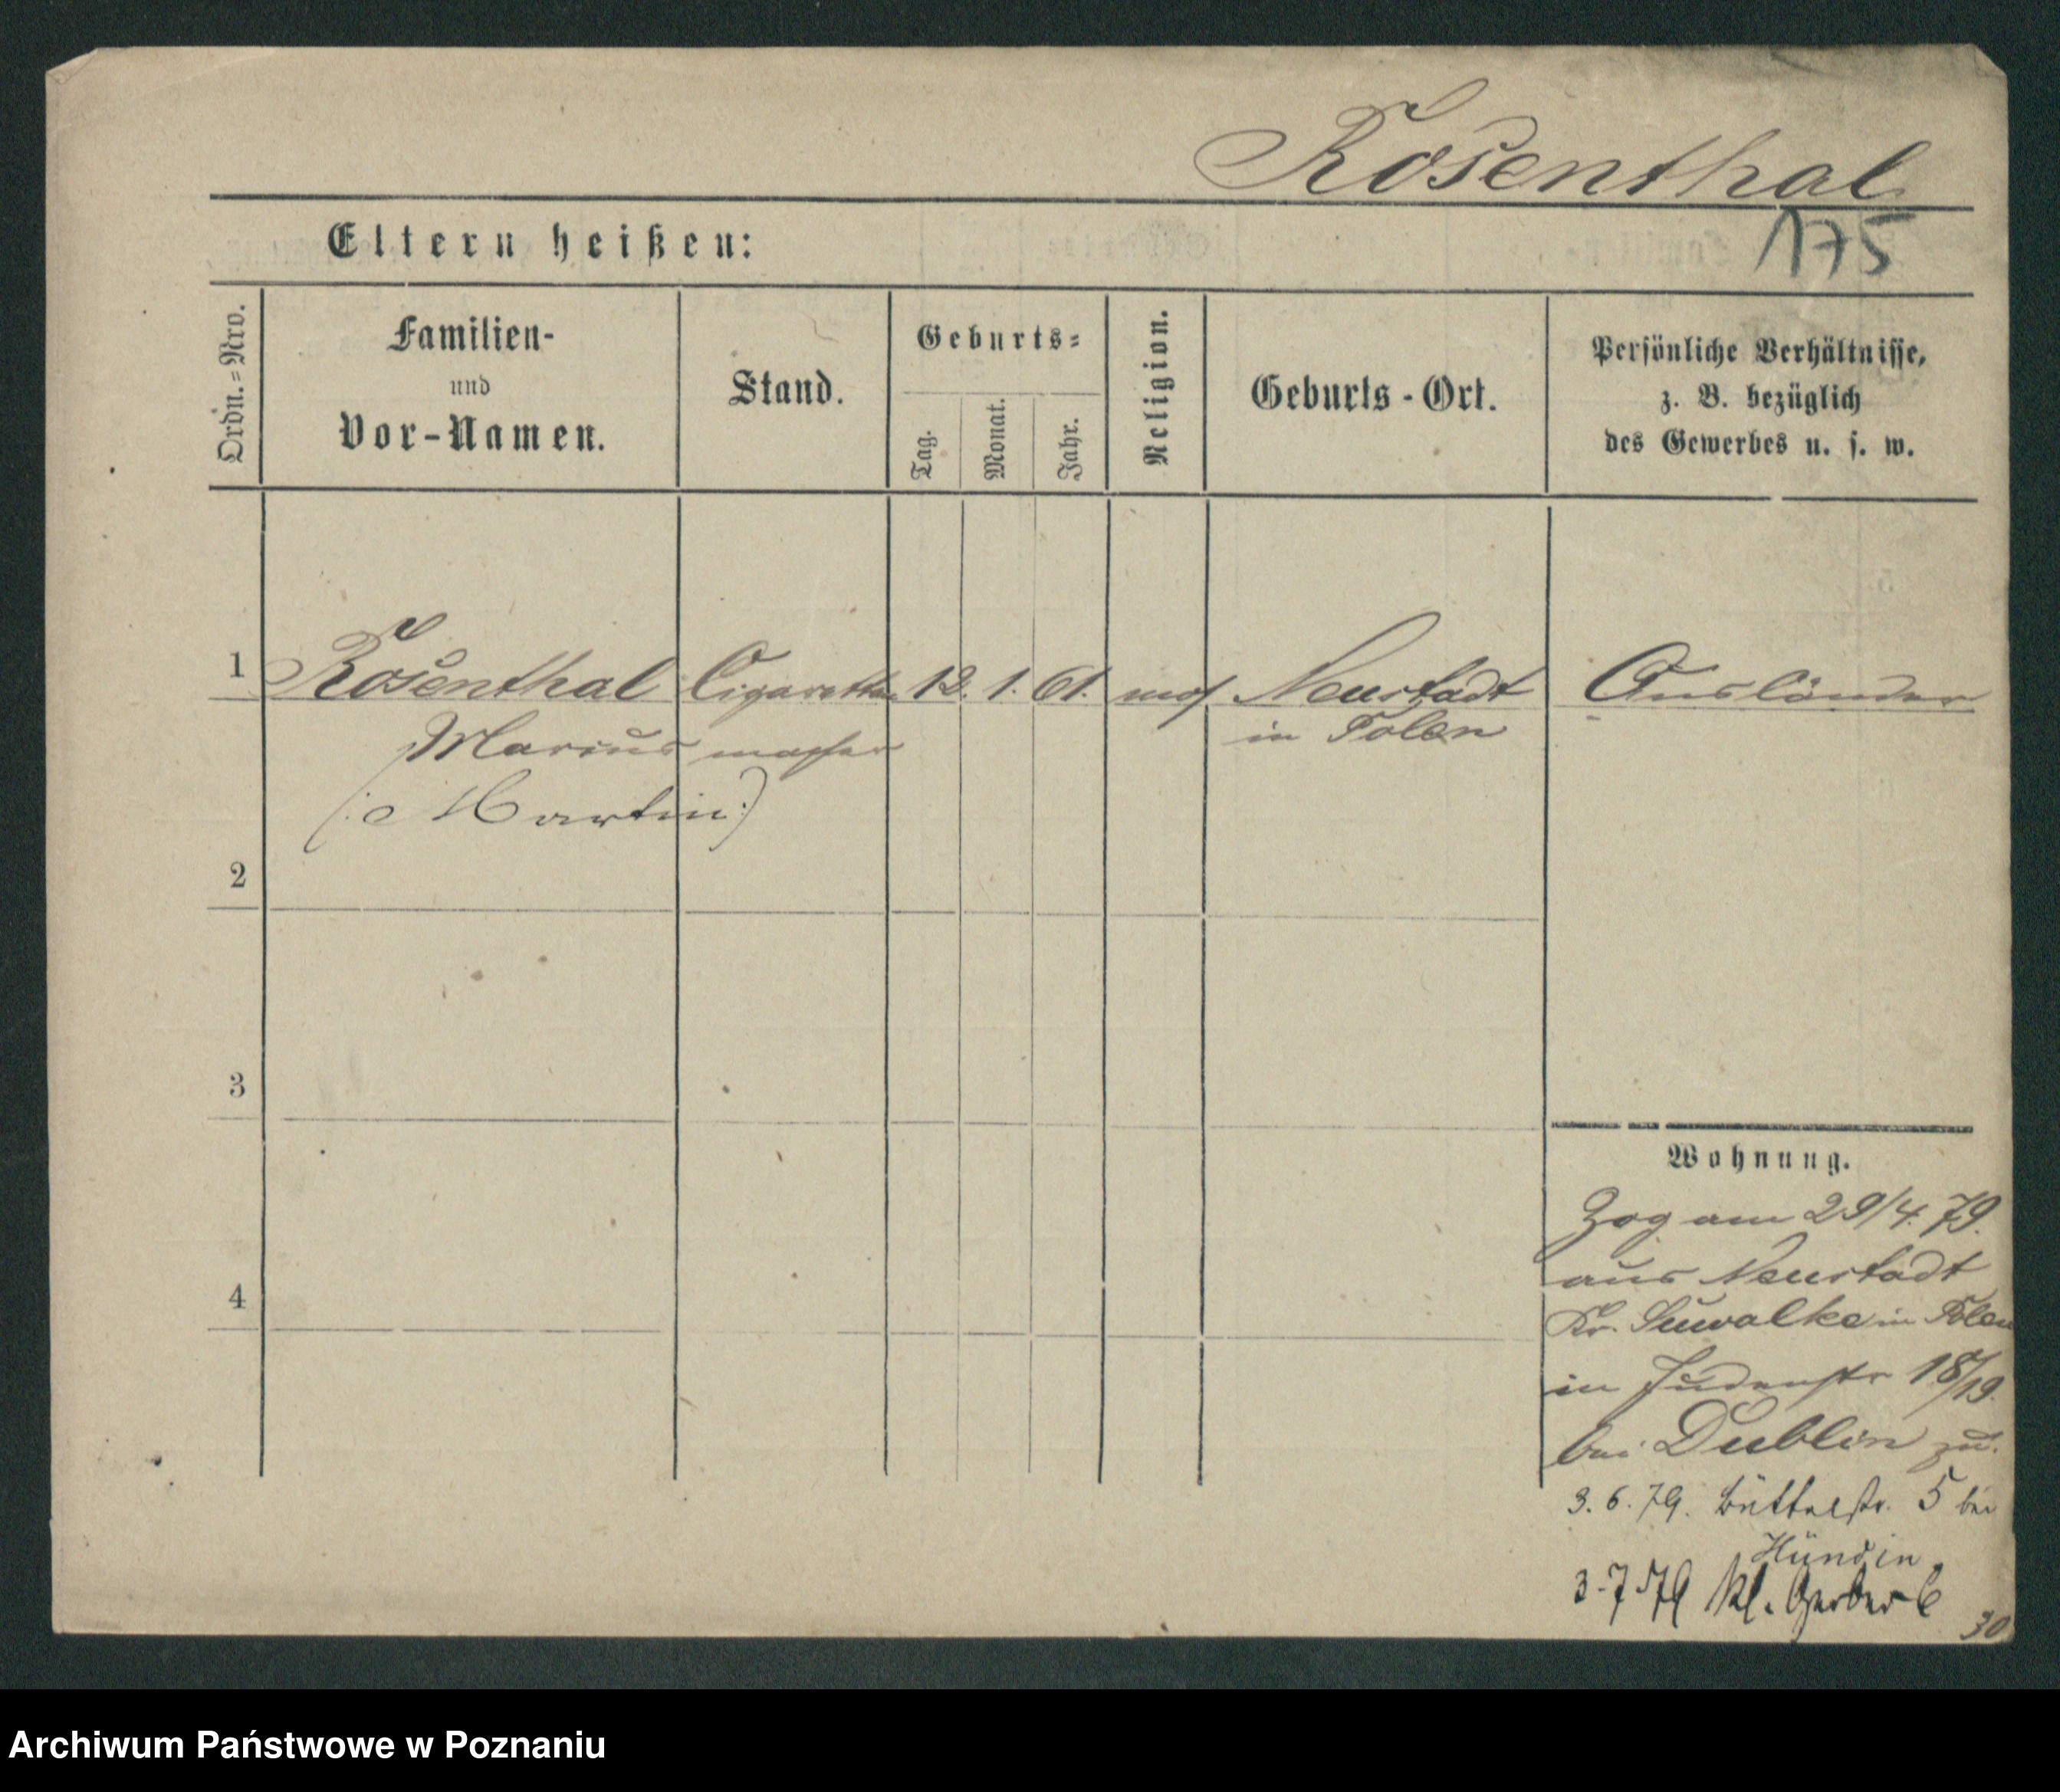 Rosenthal
175
Eltern heißen:
Ordn.=Nro.
Familien-
und
Vor-Namen.
Stand.
Geburts=
Tag.
Monat.
Jahr.
Religion.
Geburts-Ort.
Persönliche Verhältnisse,
z. B. bezüglich
des Gewerbes u. s. w.
1 Rosenthal Cigaretten 12. 1. 61. mos Neustadt Ausländer
Marcus macher in Polen
(: Martin :)
2
3
4
Wohnung.
Zog am 29/4. 79.
aus Neustadt
Kr. Suwalke in Polen
in Judenstr 18/19.
bei Dublin zu.
3. 6. 79. Büttelstr. 5 bei
3.7.79 Kl. Gerber 6
30
Archiwum Państwowe w Poznaniu